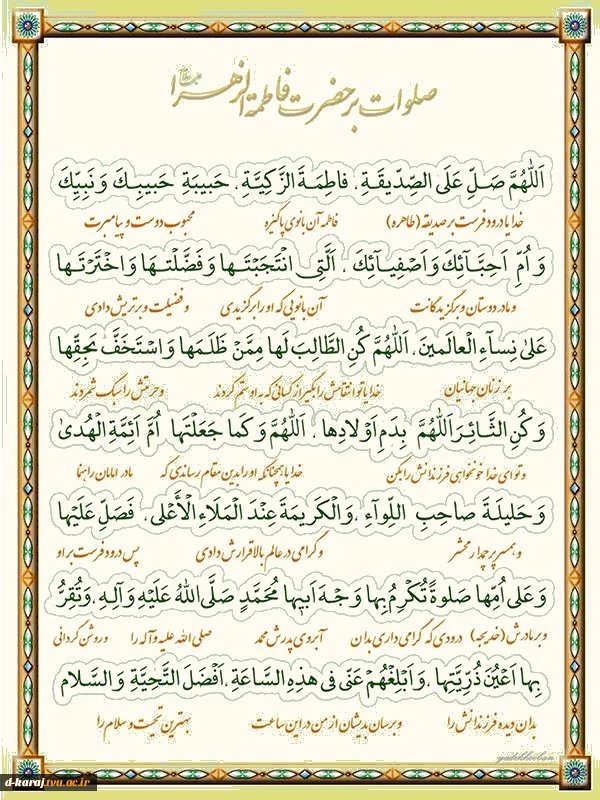 صلوات بر حضرت فاطمة الزهرا
اَللّٰهُمَّ صَلِّ عَلَى الصِّدّيقَةِ . فاطِمَةَ الزَّكِيَّةِ . حَبيبَةِ حَبيبِكَ وَ نَبِيِّكَ
خدایا درود فرست بر صدیقه (طاهره) فاطمه آن بانوی پاکیزه محبوب دوست و پیامبرت
وَ اُمِّ اَحِبَّآئِكَ وَ اَصْفِيآئِكَ . اَلَّتِى انْتَجَبْتَها وَ فَضَّلْتَها وَ اخْتَرْتَها
و مادر دوستان و برگزیدگانت آن بانویی که او را برگزیدی و فضیلت و برتریش دادی
عَلىٰ نِسآءِ الْعالَمينَ . اَللّٰهُمَّ كُنِ الطّالِبَ لَها مِمَّنْ ظَلَمَها وَ اسْتَخَفَّ بِحَقِّها
بر زنان جهانیان خدایا تو انتقامش را بگیر از کسانی که به او ستم کردند و حرمتش را سبک شمردند
وَ كُنِ الثّائِرَ اَللّٰهُمَّ بِدَمِ اَوْلادِها . اَللّٰهُمَّ وَ كَما جَعَلْتَها اُمَّ اَئِمَّةِ الْهُدىٰ
و تو ای خدا خونخواهی فرزندانش را بکن خدایا همچنانکه او را بدین مقام رساندی که مادر امامان راهنما
وَ حَليلَةَ صاحِبِ اللِّوآءِ . وَ الْكَريمَةَ عِنْدَ الْمَلَاءِ الْاَعْلى . فَصَلِّ عَلَيْها
و همسر پرچمدار محشر و گرامی در عالم بالا قرارش دادی پس درود فرست بر او
وَ عَلى اُمِّها صَلوةً تُكْرِمُ بِها وَجْهَ اَبيها مُحَمَّدٍ صَلَّى اللهُ عَلَيْهِ وَ آلِهِ . وَ تُقِرُّ
و بر مادرش (خدیجه) درودی که گرامی داری بدان آبروی پدرش محمد صلی الله علیه و آله را و روشن گردانی
بِها اَعْيُنَ ذُرِّيَّتِها . وَ اَبْلِغْهُمْ عَنّى فى هذِهِ السَّاعَةِ . اَفْضَلَ التَّحِيَّةِ وَ السَّلام
بدان دیده فرزندانش را و برسان بدیشان از من در این ساعت بهترین تحیت و سلام را
yadekhooban
d-karaj.tvu.ac.ir